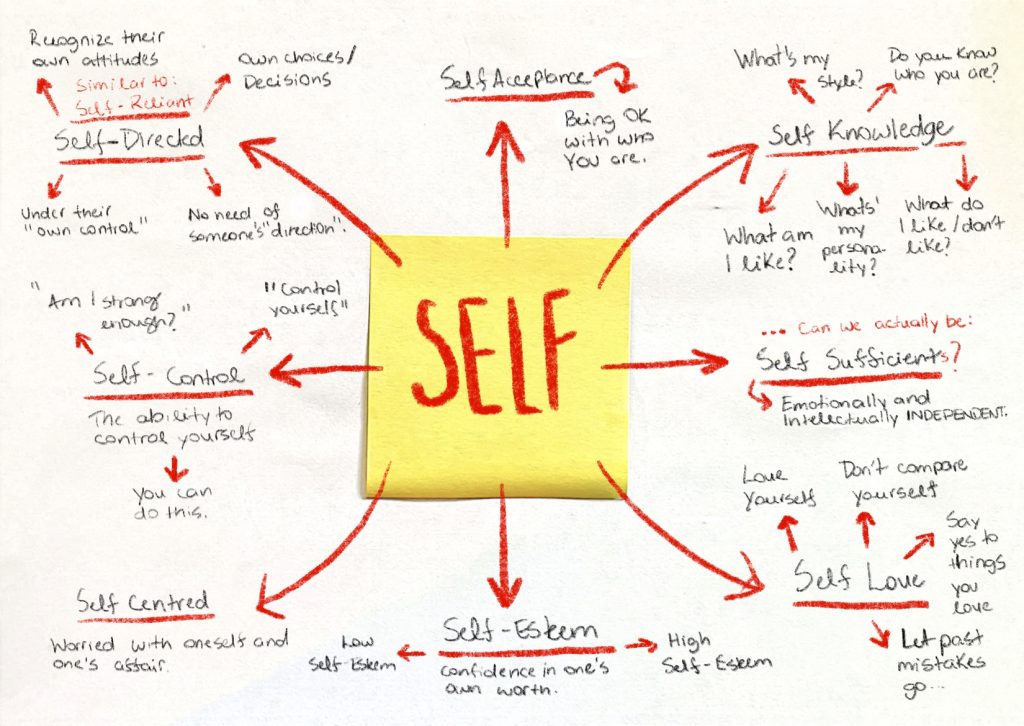 Recognize their
own attitudes
own choices/
Decisions
Similar to:
Self-Reliant
Self-Directed
Under their
"own control"
No need of
someone's "direction".
Self Acceptance
Being OK
with who
you are.
What's my
style?
Do you know
who you are?
Self Knowledge
What am
I like?
Whats'
my
persona-
lity?
What do
I like/don't
like?
"Am I strong
enough?"
"Control
yourself"
Self-Control
The ability to
control yourself
you can
do this.
SELF
... Can we actually be:
Self Sufficient's?
Emotionally and
Intellectually INDEPENDENT.
Self Centred
Worried with oneself and
one's affair.
Self-Esteem
confidence in one's
own worth.
Low
Self-Esteem
High
Self-Esteem
Love
Yourself
Don't compare
yourself
Say
yes to
things
you
love
Self Love
Let past
mistakes
go...